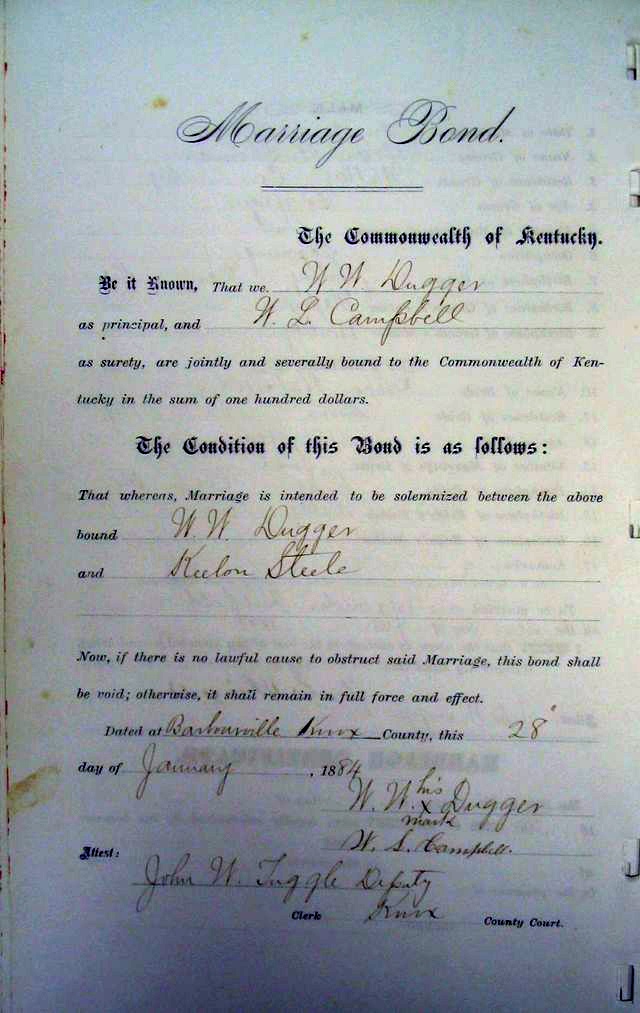 Marriage Bond.
The Commonwealth of Kentucky.
Be it Known, That we. W W Dugger
as principal, and W. L. Campbell
as surety, are jointly and severally bound to the Commonwealth of Ken-
tucky in the sum of one hundred dollars.
The Condition of this Bond is as follows:
That whereas, Marriage is intended to be solemnized between the above
bound W. W. Dugger
and Keelon Steele
Now, if there is no lawful cause to obstruct said Marriage, this bond shall
be void; otherwise, it shall remain in full force and effect.
Dated at Barbourville Knox County, this 28
day of January, 1884
his
W. W. x Dugger
mark
W. S. Campbell.
Attest:
John W. Tuggle Deputy
Clerk Knox County Court.